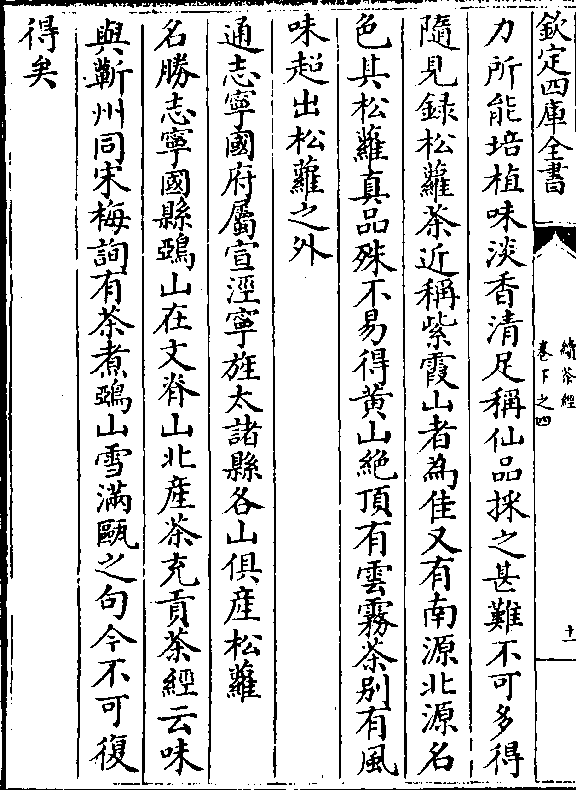 欽定四庫全書
續茶經
卷下之四
十一
力所能培植味淡香清足稱仙品採之甚難不可多得
隨見録松蘿茶近稱紫霞山者為佳又有南源北源名
色其松蘿真品殊不易得黄山絶頂有雲霧茶别有風
味超出松蘿之外
通志寧國府屬宣涇寧旌太諸縣各山俱産松蘿
名勝志寧國縣鵶山在文脊山北産茶充貢茶經云味
與蘄州同宋梅詢有茶煮鵶山雪滿甌之句今不可復
得矣